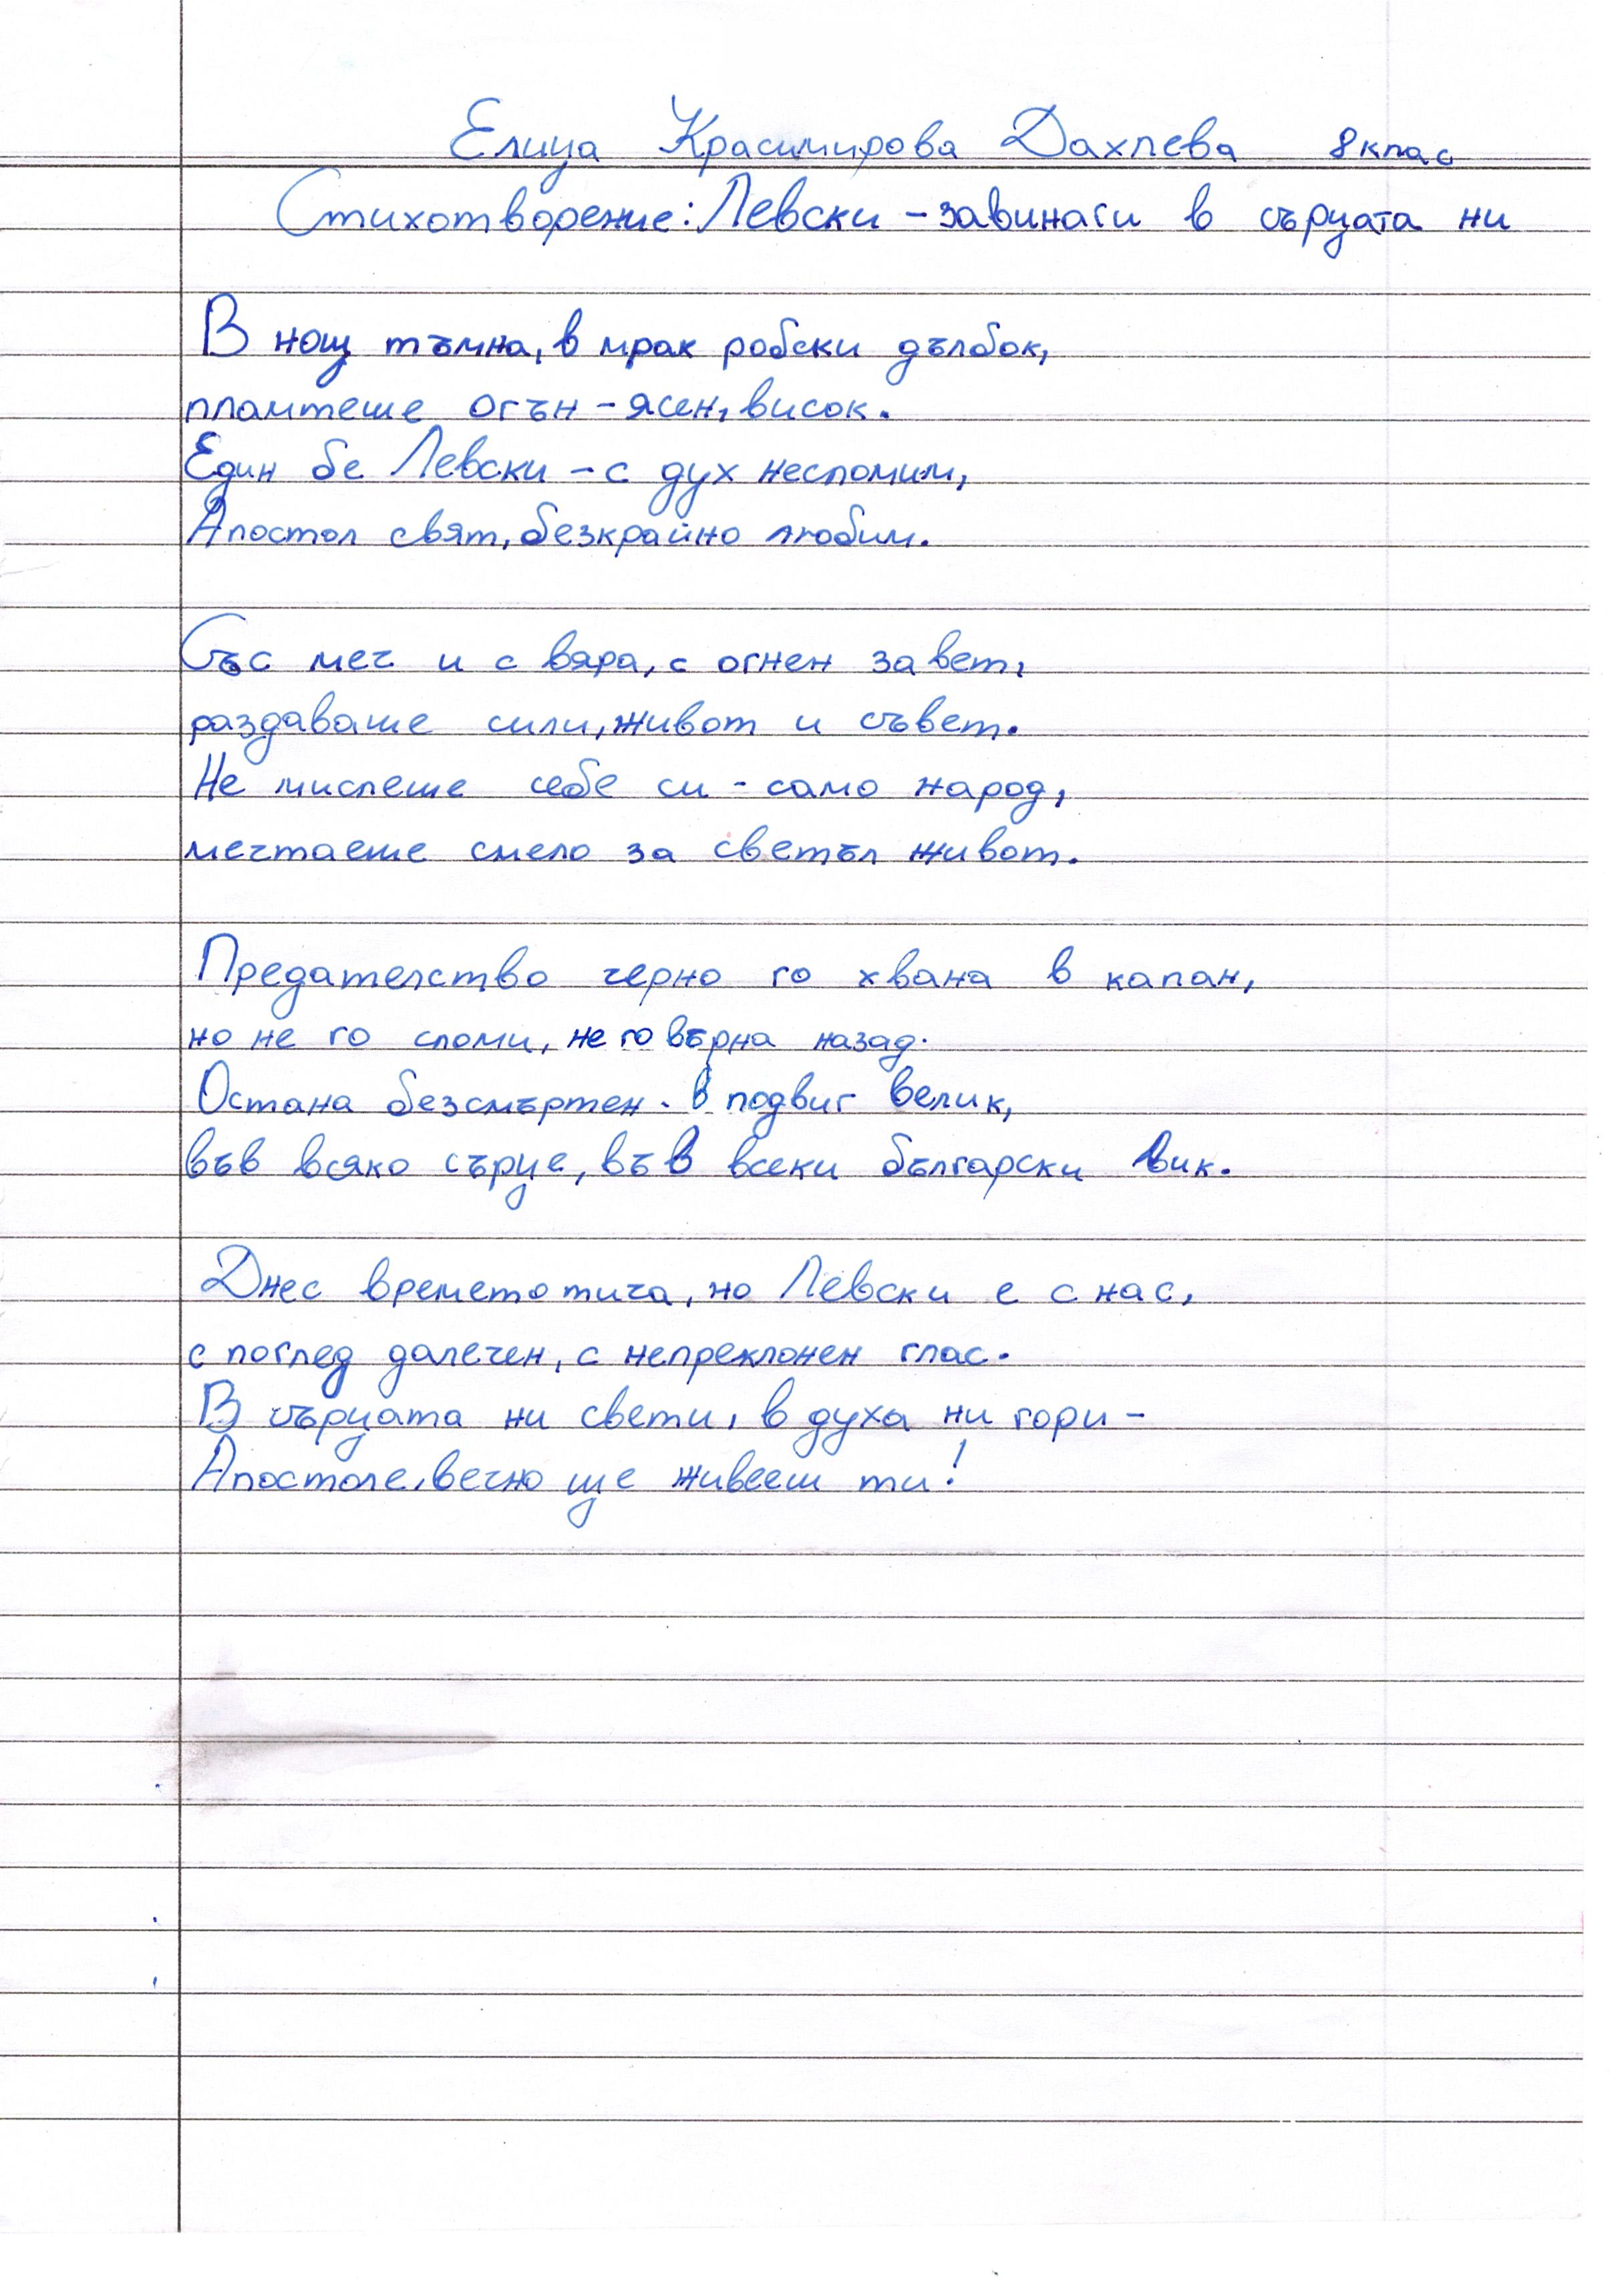 Елица Красимирова Дахлева 8 клас
Стихотворение: Левски – завинаги в сърцата ни
В нощ тъмна, в мрак робски дълбок,
пламтеше огън – ясен, висок.
Един бе Левски – с дух несломим,
Апостол свят, безкрайно любим.
Със меч и с вяра, с огнен завет,
раздаваше сили, живот и съвет.
Не мислеше себе си - само народ,
мечтаеше смело за светъл живот.
Предателство черно го хвана в капан,
но не го сломи, не го върна назад.
Остана безсмъртен - в подвиг велик,
във всяко сърце, във всеки български вик.
Днес времето тича, но Левски е с нас,
с поглед далечен, с непреклонен глас.
В сърцата ни свети, в духа ни гори –
Апостоле, вечно ще живееш ти!